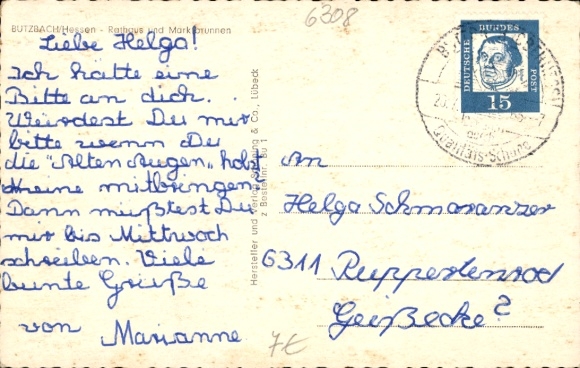 6308
BUTZBACH/Hessen - Rathaus und Marktbrunnen
Liebe Helga!
Ich hätte eine
Bitte an dich.
Würdest Du mir
bitte wenn Du
die "Alten Augen" holst
meine mitbringen.
Dann müßtest Du
mir bis Mittwoch
schreiben. Viele
bunte Grüße
von Marianne
Hersteller und Verlag Schöning & Co., Lübeck
DEUTSCHE BUNDES POST
15
An
Helga Schmaranzer
6311 Ruppertenrod
Geißecke 2
7€